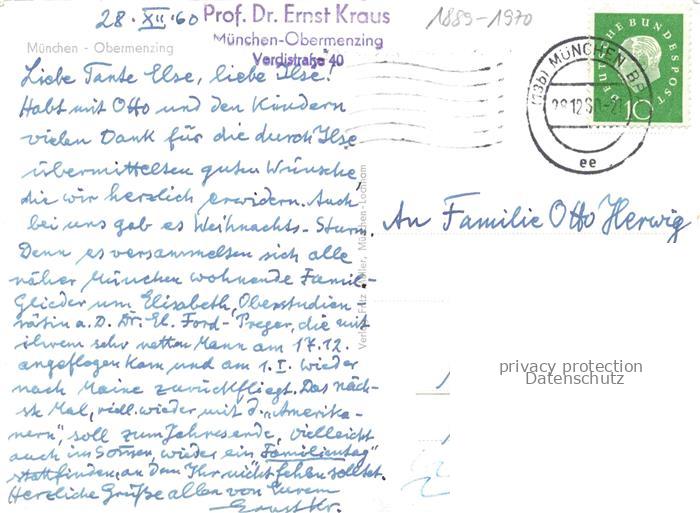 28. XII. '60
Prof. Dr. Ernst Kraus
München-Obermenzing
Verdistraße 40
1889-1970
München - Obermenzing
Liebe Tante Else, liebe Ilse!
Habt mit Otto und den Kindern
vielen Dank für die durch Ilse
übermittelten guten Wünsche,
die wir herzlich erwidern. Auch
bei uns gab es Weihnachts-Sturm.
Denn es versammelten sich alle
näher München wohnende Famil-
Glieder um Elisabeth, Oberstudien
rätin a.D. Dr. El. Ford-Preger, die mit
ihrem sehr netten Mann am 17.12.
angeflogen kam und am 1. I. wieder
nach Maine zurückfliegt. Das näch-
ste Mal, viell. wieder mit d. "Amerika-
nern", soll zum Jahresende, vielleicht
auch im Sommer, wieder ein "Familientag"
stattfinden, an dem Ihr nicht fehlen solltet.
Herzliche Grüße allen von Eurem
Ernst Kr.
München-Lochham
DEUTSCHE BUNDESPOST
10
(13b) MÜNCHEN BP
28.12.60-21
ee
An Familie Otto Herwig
privacy protection
Datenschutz